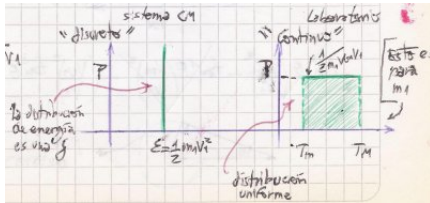 sistema CM
Laboratorio
"discreto"
"Continuo"
V1
P
P
esto e
para
m1
la distribución
de energía
es una f
ε=1/2 m1V1²
Tm
TM
distribución
uniforme